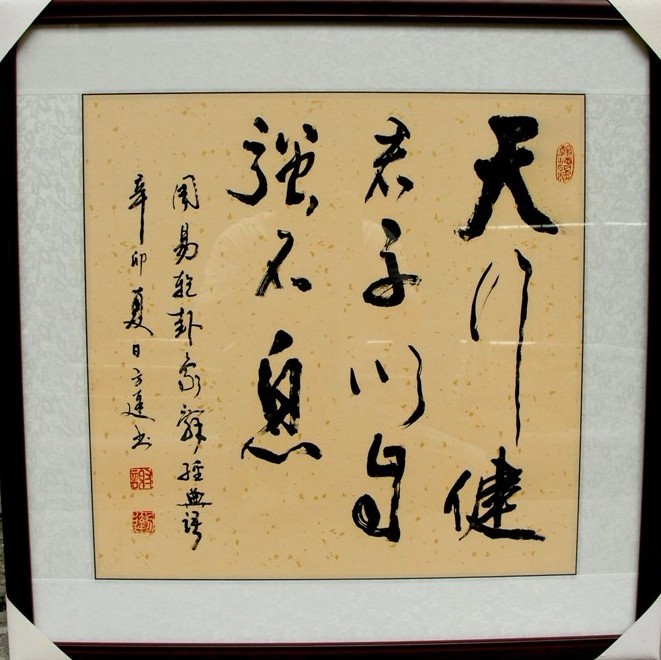 天行健
君子以自
強不息
周易乾卦象辞經典語
辛卯夏日方建书